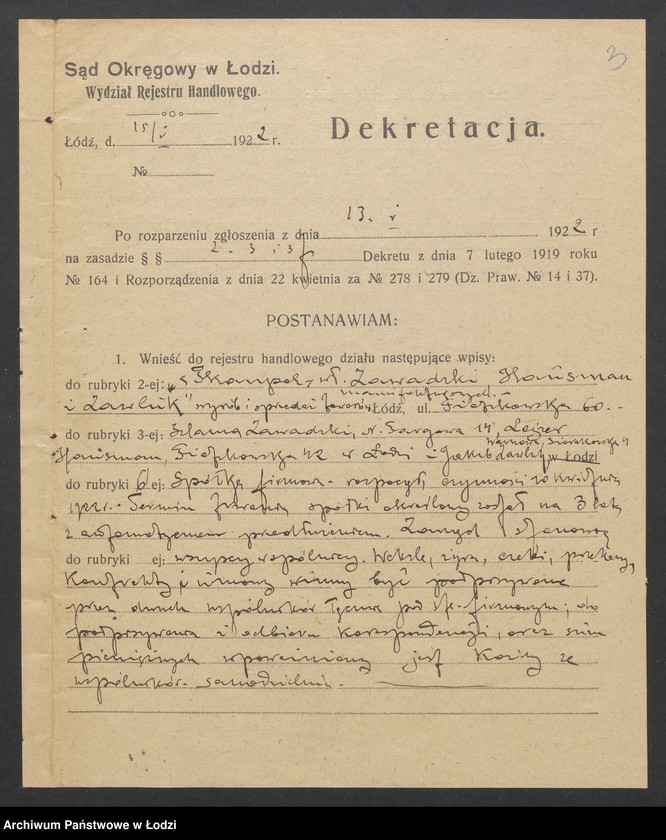 3
Sąd Okręgowy w Łodzi.
Wydział Rejestru Handlowego.
Łódź, d. 15/V 1922 r.
Dekretacja.
№
Po rozparzeniu zgłoszenia z dnia 13. V 1922 r
na zasadzie § § 2. 3 i 3 f Dekretu z dnia 7 lutego 1919 roku
№ 164 i Rozporządzenia z dnia 22 kwietnia za № 278 i 279 (Dz. Praw. № 14 i 37).
POSTANAWIAM:
1. Wnieść do rejestru handlowego działu następujące wpisy:
do rubryki 2-ej: wł. Zawadzki Hausman
manufakturowych.
i Zawluk" wyrób i sprzedaż towarów Łódź, ul. 60.-
do rubryki 3-ej: Szlama Zawadzki, 14, Lejzer
Hausman, 42 w Łodzi i Jakub w Łodzi
do rubryki 6 ej: Spółka firmowa. rozpoczęła czynności 20 kwietnia
1922 r. Termin trwania spółki określony został na 3 lata
z automatycznem przedłużeniem. Zarząd stanowią
do rubryki ej: wszyscy wspólnicy. Weksle, żyra, czeki, przekazy,
kontrakty i umowy winny być podpisywane
przez dwuch wspólników łącznie pod st. firmowym; do
podpisywania i odbioru korespondencji, oraz sum
pieniężnych upoważniony jest każdy ze
wspólników samodzielnie.
Archiwum Państwowe w Łodzi